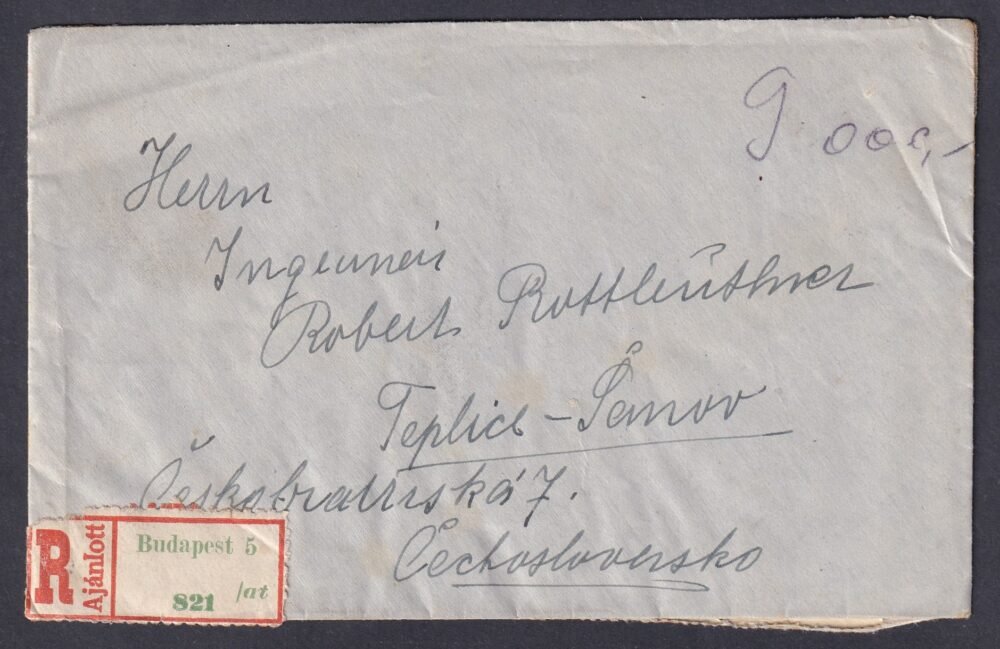 9 000,-
Herrn
Ingeuneir
Robert Rottleuthner
Teplice-Šanov
Českobratrská 7.
Čechosloversko
R
Ajánlott
Budapest 5
821 /at